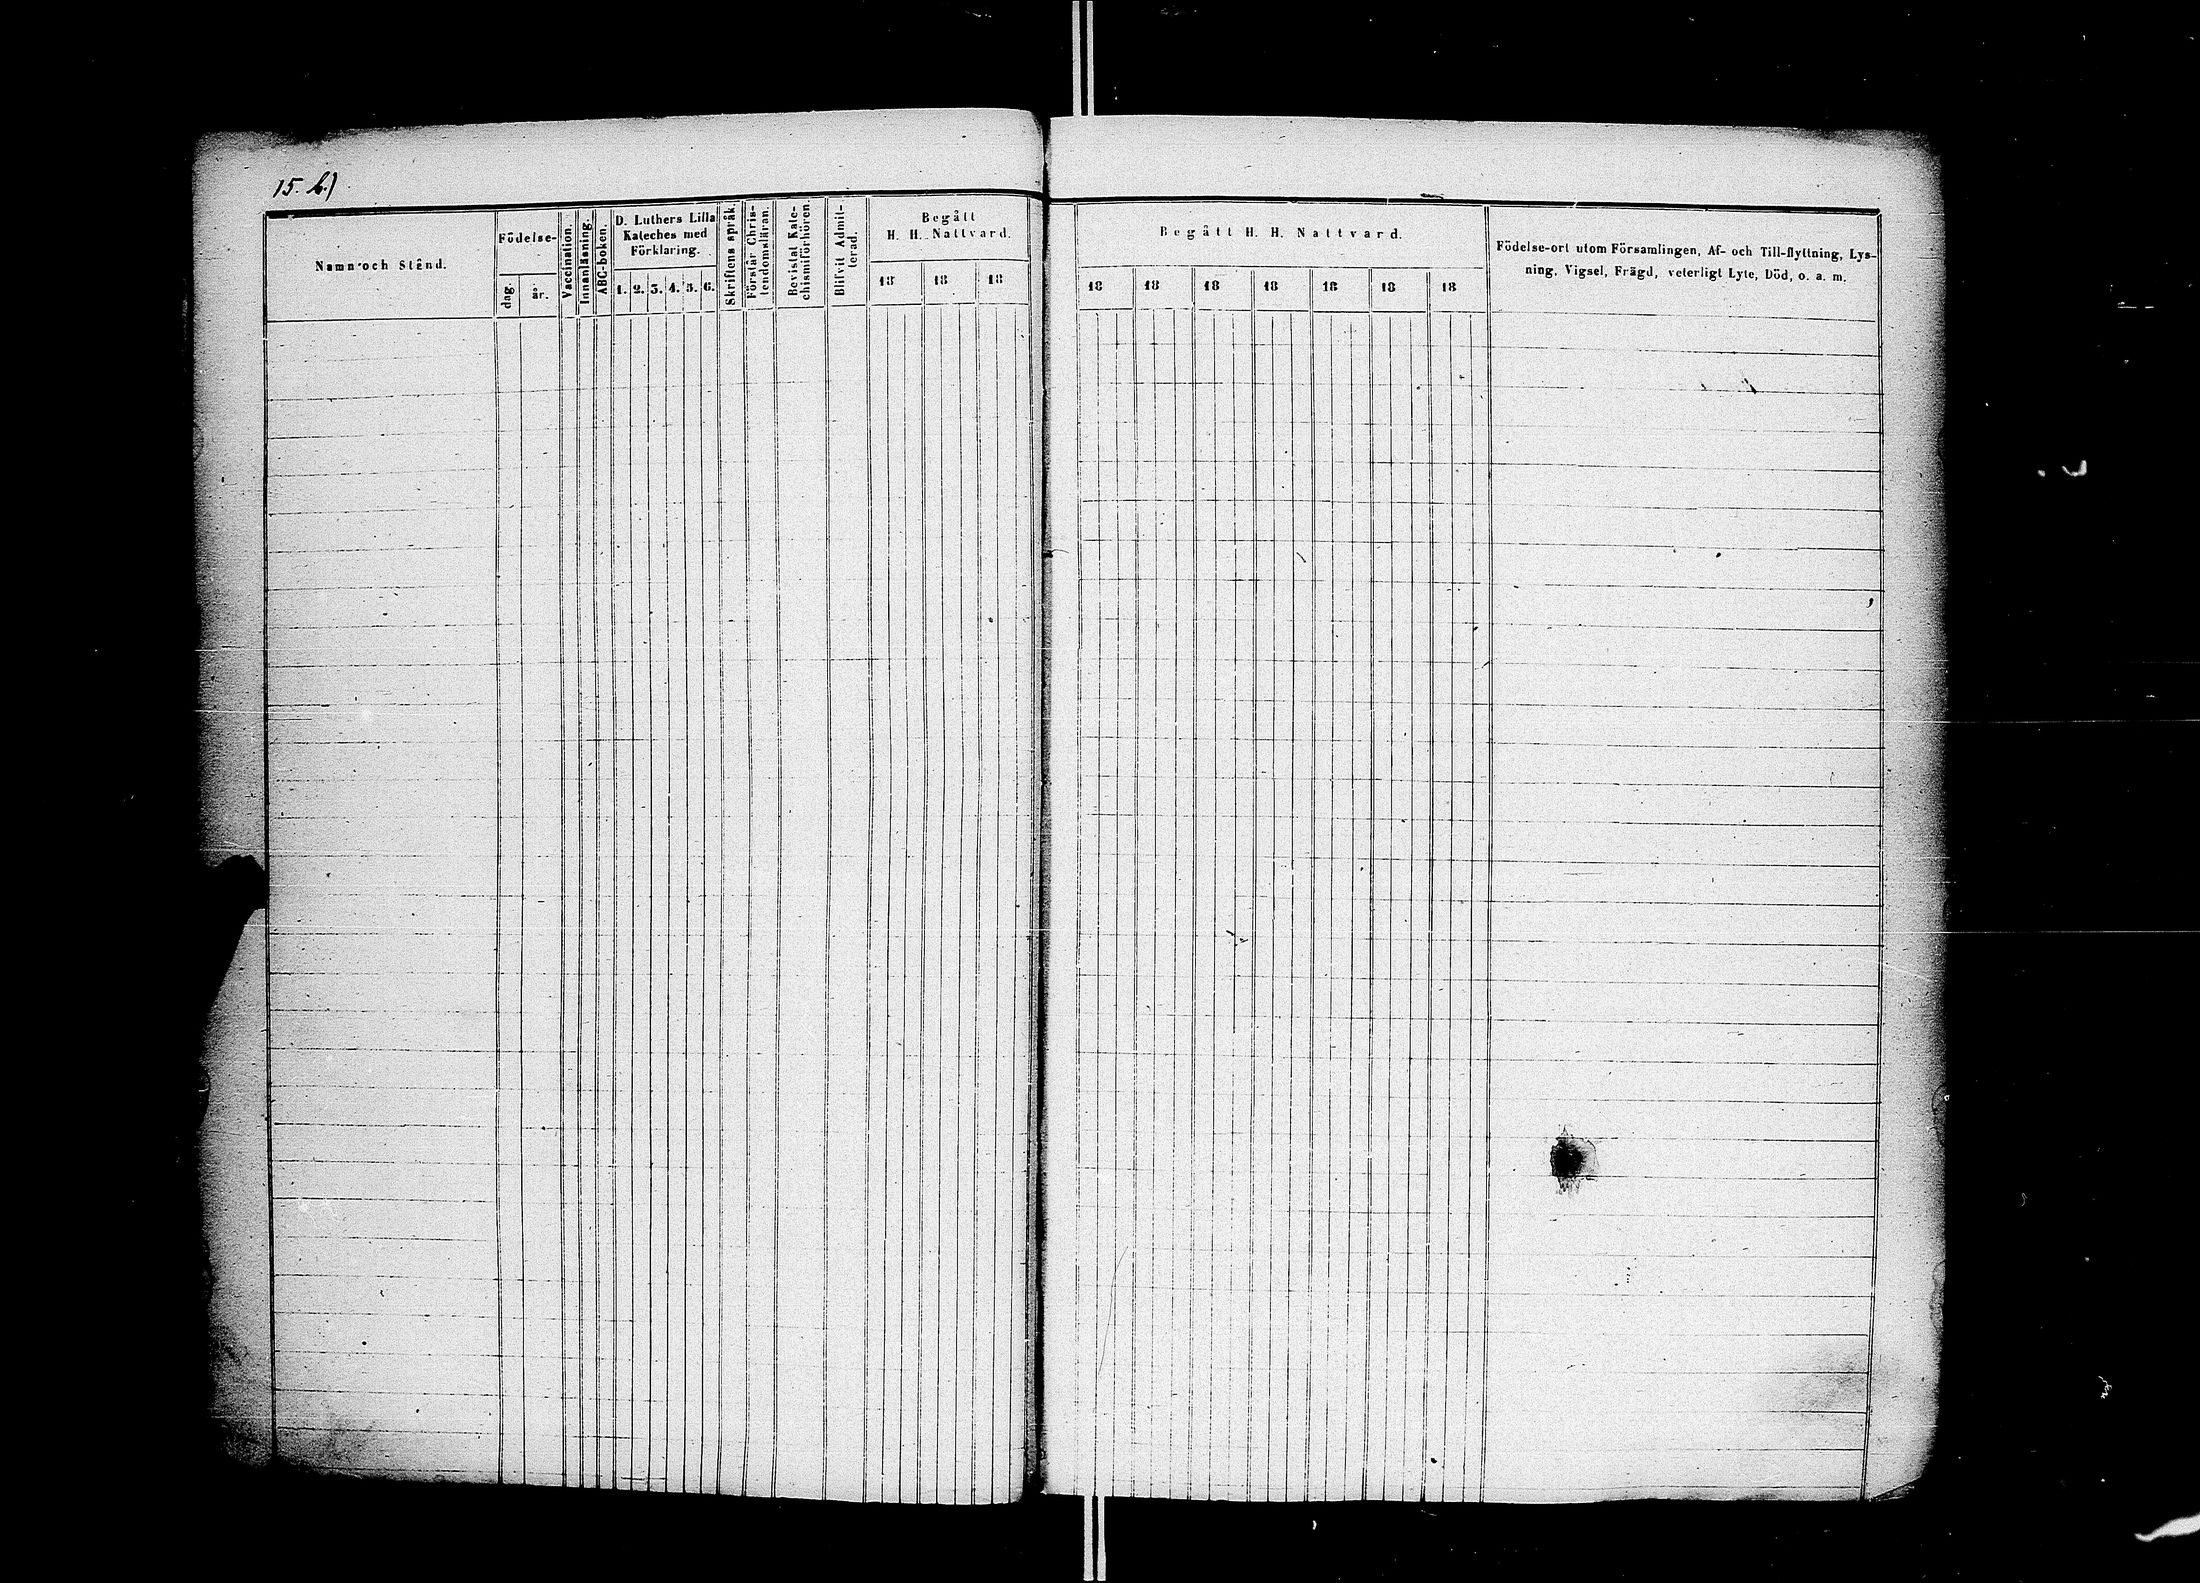 15. b.)
Namn och Stånd.
Födelse-
dag.
år.
Vaccination.
Innanläsning.
ABC-boken.
D. Luthers Lilla
Kateches med
Förklaring.
1. 2. 3. 4. 5. 6.
Skriftens språk.
Förstår Chris-
tendomsläran.
Bevistat Kate-
chismiförhören.
Blifvit Admit-
terad.
Begått
H. H. Nattvard.
18 18 18
Begått H. H. Nattvard.
18 18 18 18 18 18 18
Födelse-ort utom Församlingen, Af- och Till-flyttning, Lys-
ning, Vigsel, Frägd, veterligt Lyte, Död, o. a. m.